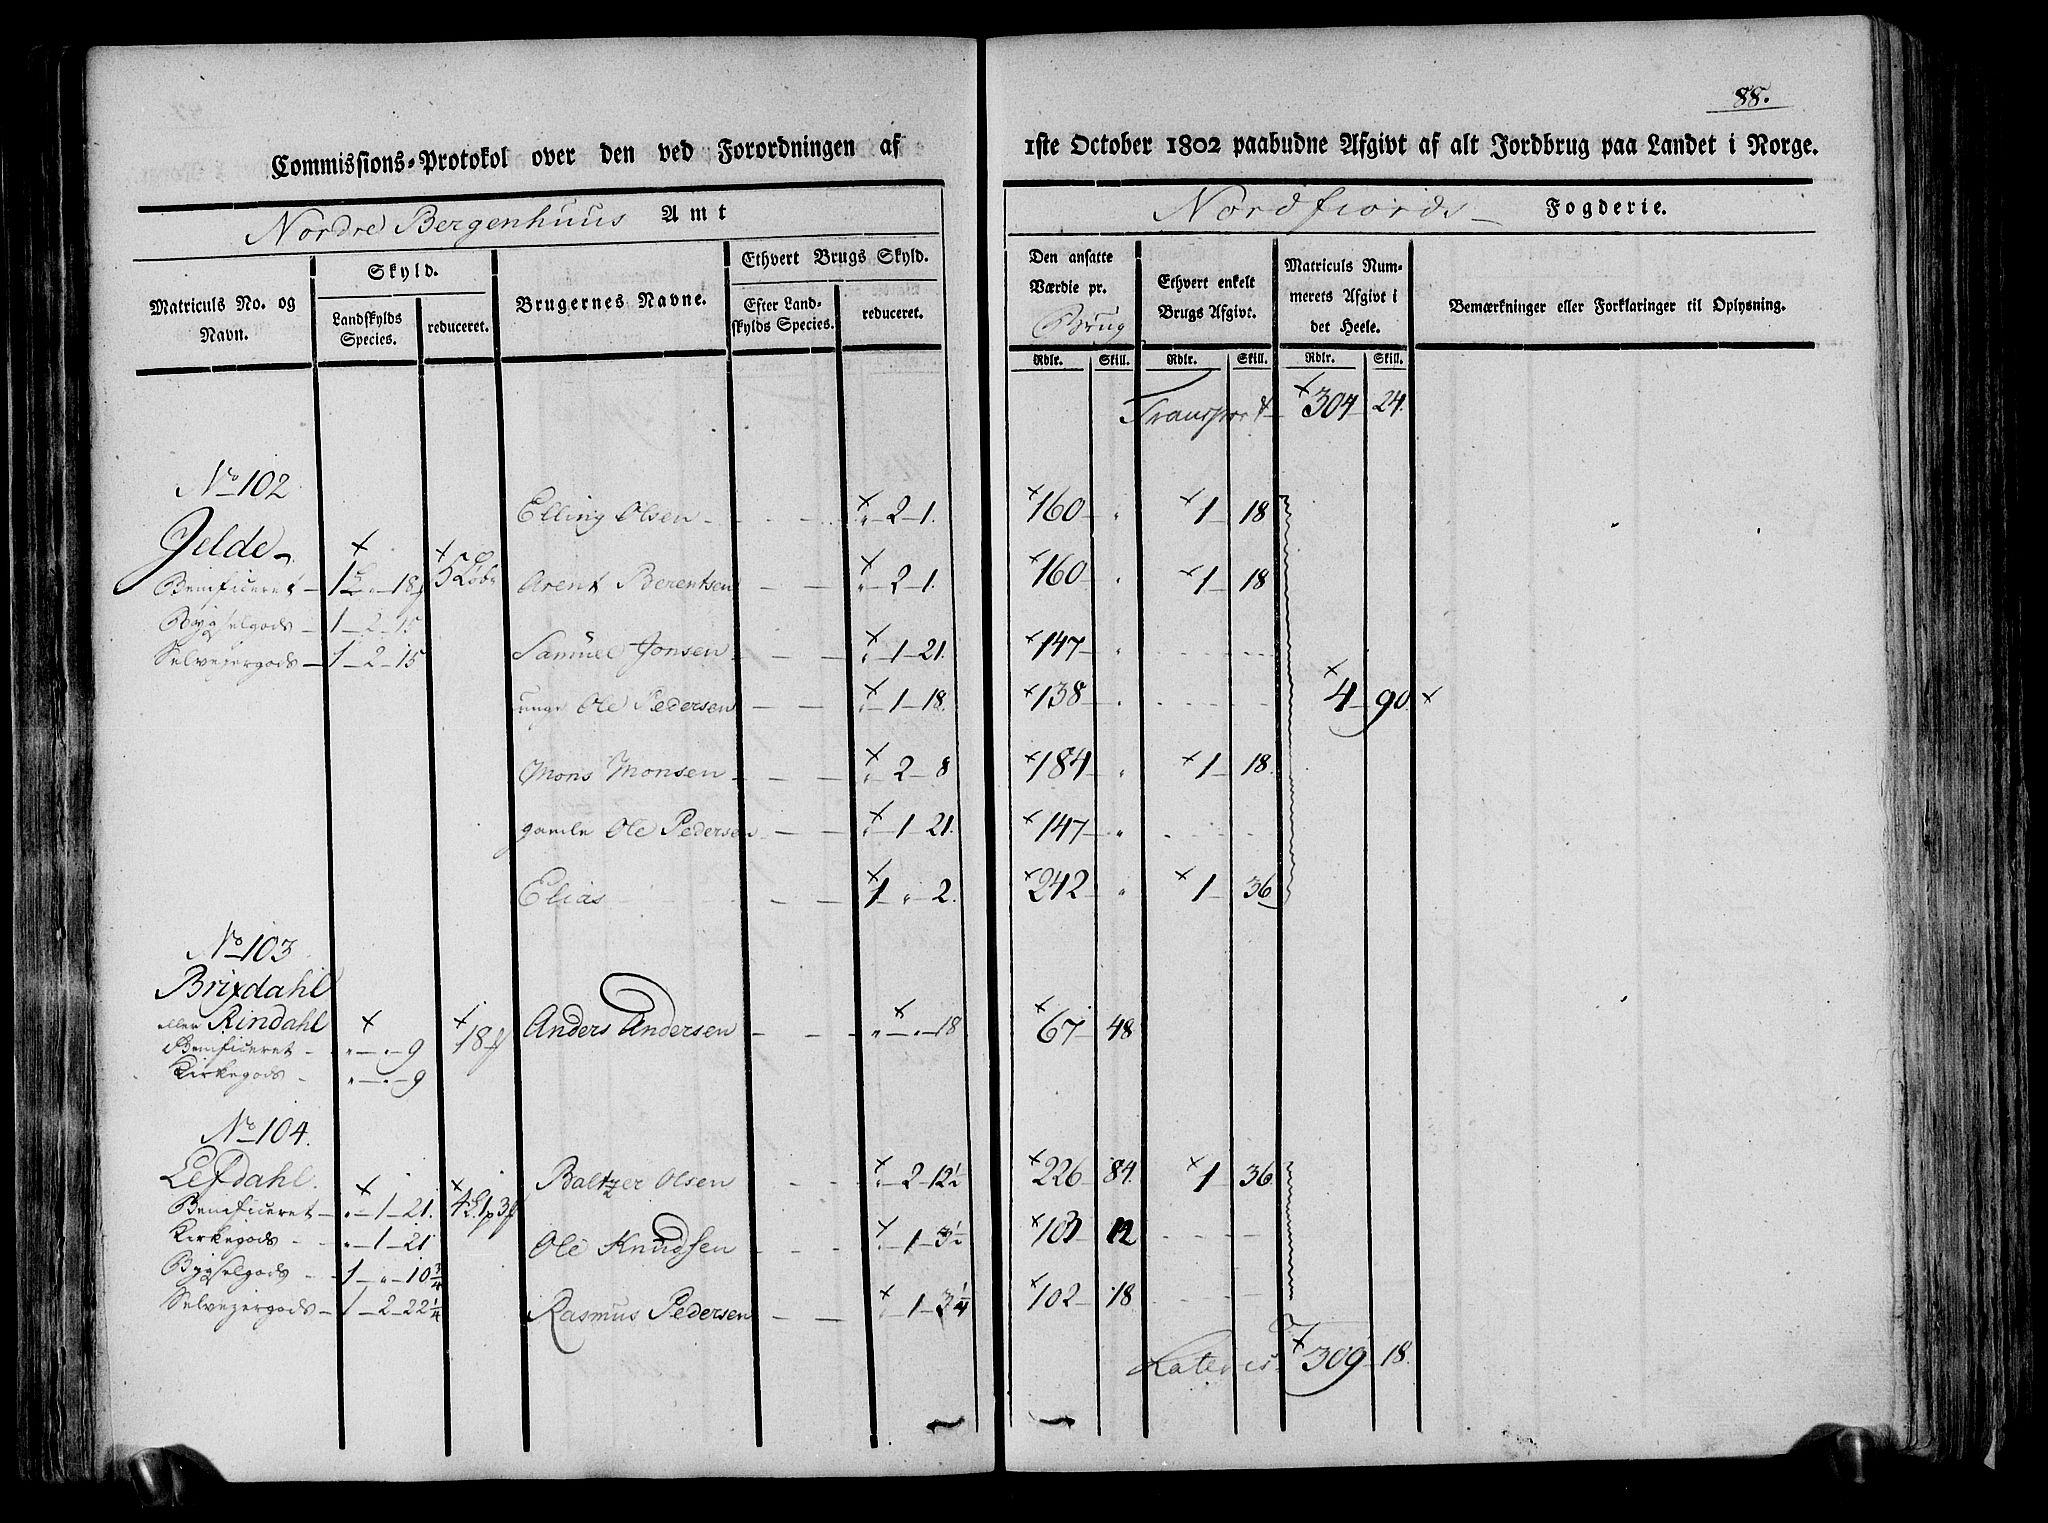 88.
Commissions-Protokol over den ved Forordningen af
1ste October 1802 paabudne Afgivt af alt Jordbrug paa Landet i Norge.
Nordre Bergenhuus Amt
Nordfiords Fogderie.
Matriculs No. og Navn.
Skyld.
Landskylds Species.
reduceret.
Brugernes Navne.
Ethvert Brugs Skyld.
Efter Landskylds Species.
reduceret.
Den ansatte Værdie pr. Brug
Rdlr. Skill.
Ethvert enkelt Brugs Afgivt.
Rdlr. Skill.
Matriculs Nummerets Afgivt i det Heele.
Rdlr. Skill.
Bemærkninger eller Forklaringer til Oplysning.
Transport 304 24.
No 102
Elling Olsen 2 1. 160 1 18
Jelde
Beneficeret 1 18 5 Arent Berentsen 2 1. 160 1 18
Bygselgods 1 2 15
Selveyergods 1 2 15 Samuel Jonsen 1 21. 147
unge Ole Pedersen 1 18. 138 4 90.
Mons Monsen 2 8 184 1 18.
gamle Ole Pedersen 1 21. 147
Elias 1 2. 242 1 36
No 103
Brixdahl
eller Rindahl 18 Anders Andersen 18 67 48
Beneficeret 9
Kirkegods 9
No 104.
Lefdahl. Baltzer Olsen 2 12½ 226 84. 1 36.
Beneficeret 1 21.
Kirkegods 1 21 Ole Knudsen 1 3½ 103 12
Bygselgods 1 10¾
Selveyergods 1 2 22¼ Rasmus Pedersen 1 3¼ 102 18
Lateris 309 18.